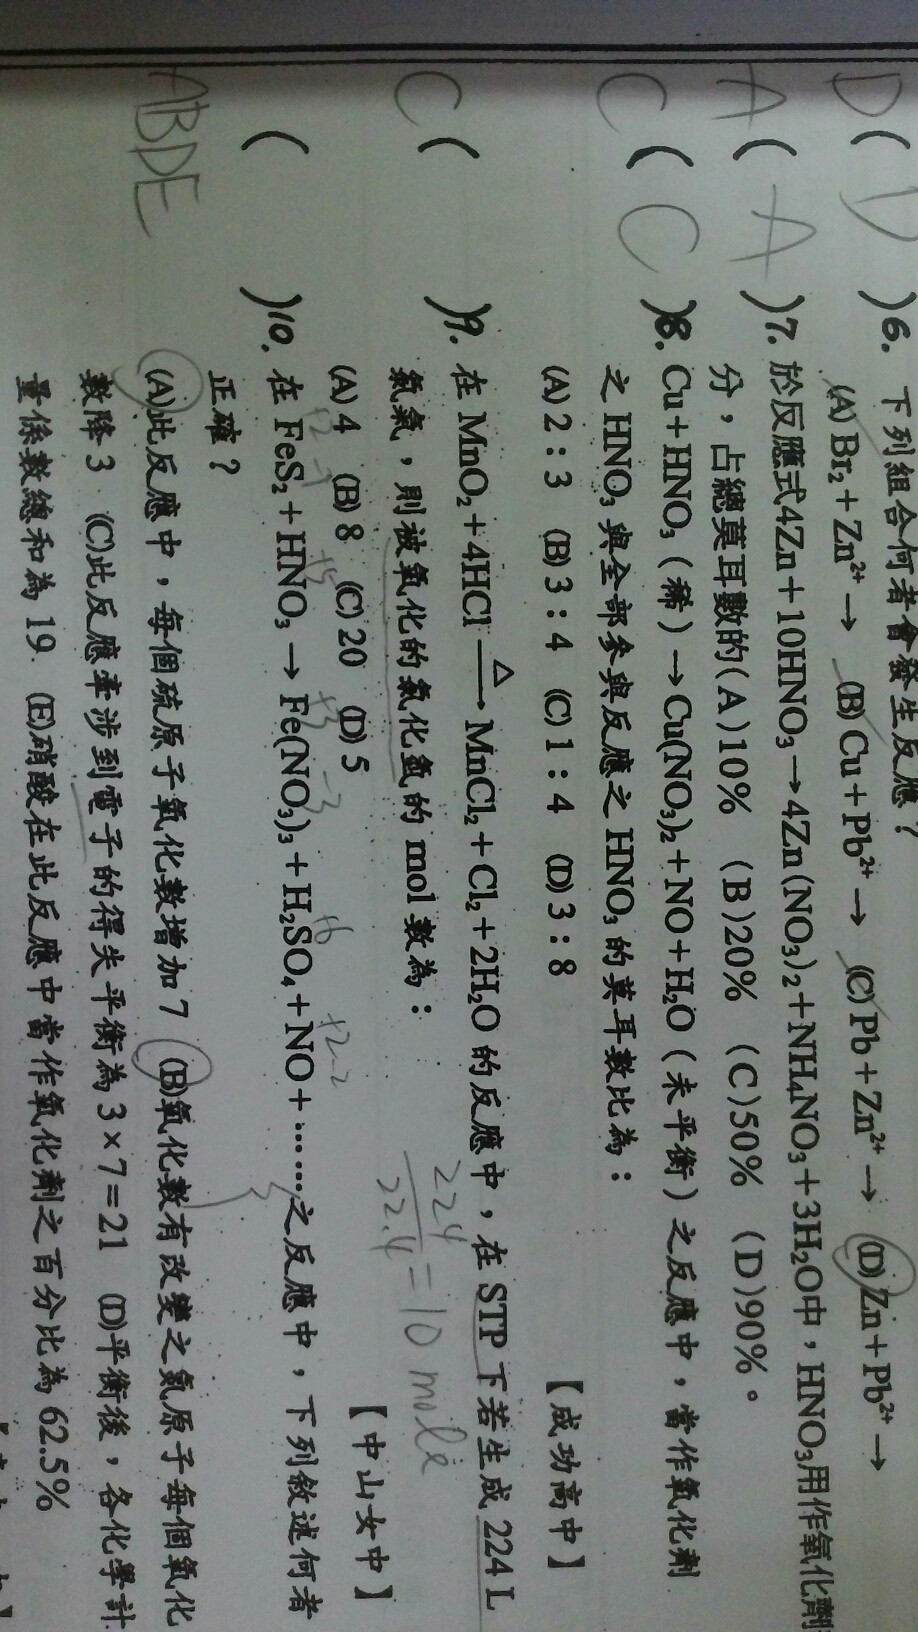 D ( D )6. 下列組合何者會發生反應?
(A) Br₂+Zn²⁺→ (B) Cu+Pb²⁺→ (C) Pb+Zn²⁺→ (D) Zn+Pb²⁺→
A ( A )7. 於反應式4Zn+10HNO₃→4Zn(NO₃)₂+NH₄NO₃+3H₂O中,HNO₃用作氧化劑
分,占總莫耳數的(A)10% (B)20% (C)50% (D)90%。
C ( C )8. Cu+HNO₃(稀)→Cu(NO₃)₂+NO+H₂O(未平衡)之反應中,當作氧化劑
之HNO₃與全部參與反應之HNO₃的莫耳數比為:
(A) 2:3 (B) 3:4 (C) 1:4 (D) 3:8 【成功高中】
C ( )9. 在 MnO₂+4HCl —△→ MnCl₂+Cl₂+2H₂O 的反應中,在 STP 下若生成 224 L
氯氣,則被氧化的氯化氫的 mol 數為:
224/22.4 = 10 mole
(A) 4 (B) 8 (C) 20 (D) 5 【中山女中】
( )10. 在 FeS₂+HNO₃→Fe(NO₃)₃+H₂SO₄+NO+……之反應中,下列敘述何者
+2 -1 +5 +3 +6 +2-2
正確?
ABDE
(A)此反應中,每個硫原子氧化數增加 7 (B)氧化數有改變之氮原子每個氧化
3
數降 3 (C)此反應牽涉到電子的得失平衡為 3×7=21 (D)平衡後,各化學計
量係數總和為 19 (E)硝酸在此反應中當作氧化劑之百分比為 62.5%